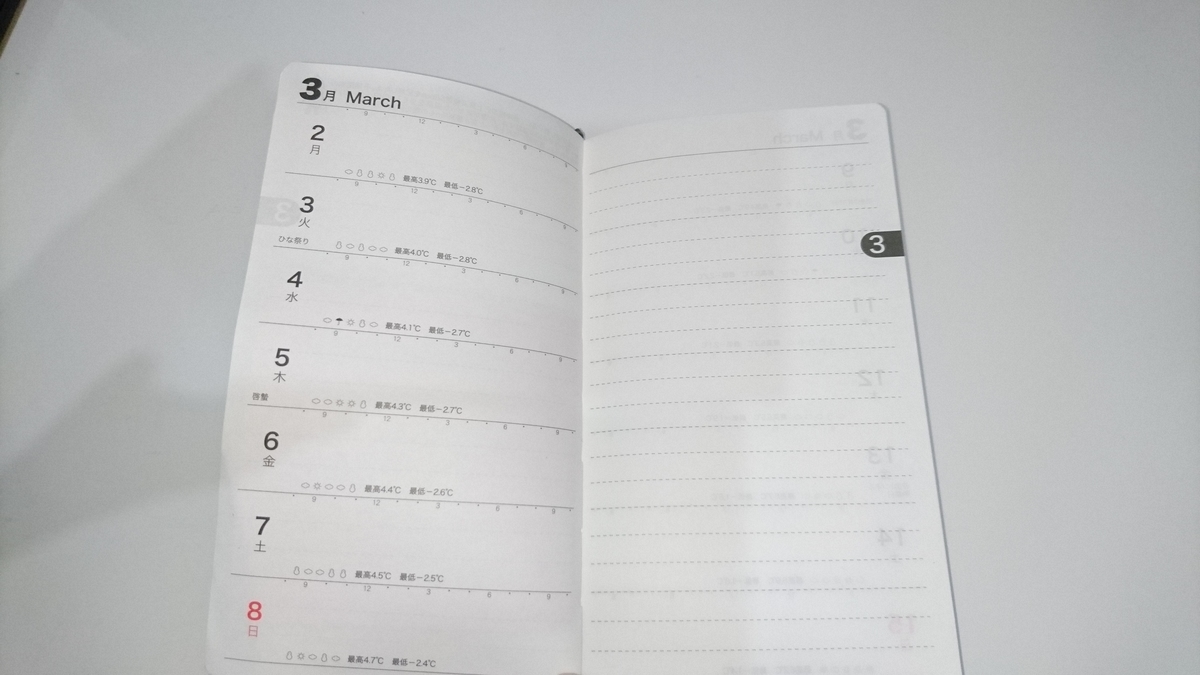 3月 March
9 12 3 6 9
2
月
最高3.9℃ 最低−2.8℃
9 12 3 6 9
3
火
ひな祭り 最高4.0℃ 最低−2.8℃
9 12 3 6 9
4
水
最高4.1℃ 最低−2.7℃
9 12 3 6 9
5
木
啓蟄 最高4.3℃ 最低−2.7℃
9 12 3 6 9
6
金
最高4.4℃ 最低−2.6℃
9 12 3 6 9
7
土
最高4.5℃ 最低−2.5℃
9 12 3 6 9
8
日
最高4.7℃ 最低−2.4℃
3